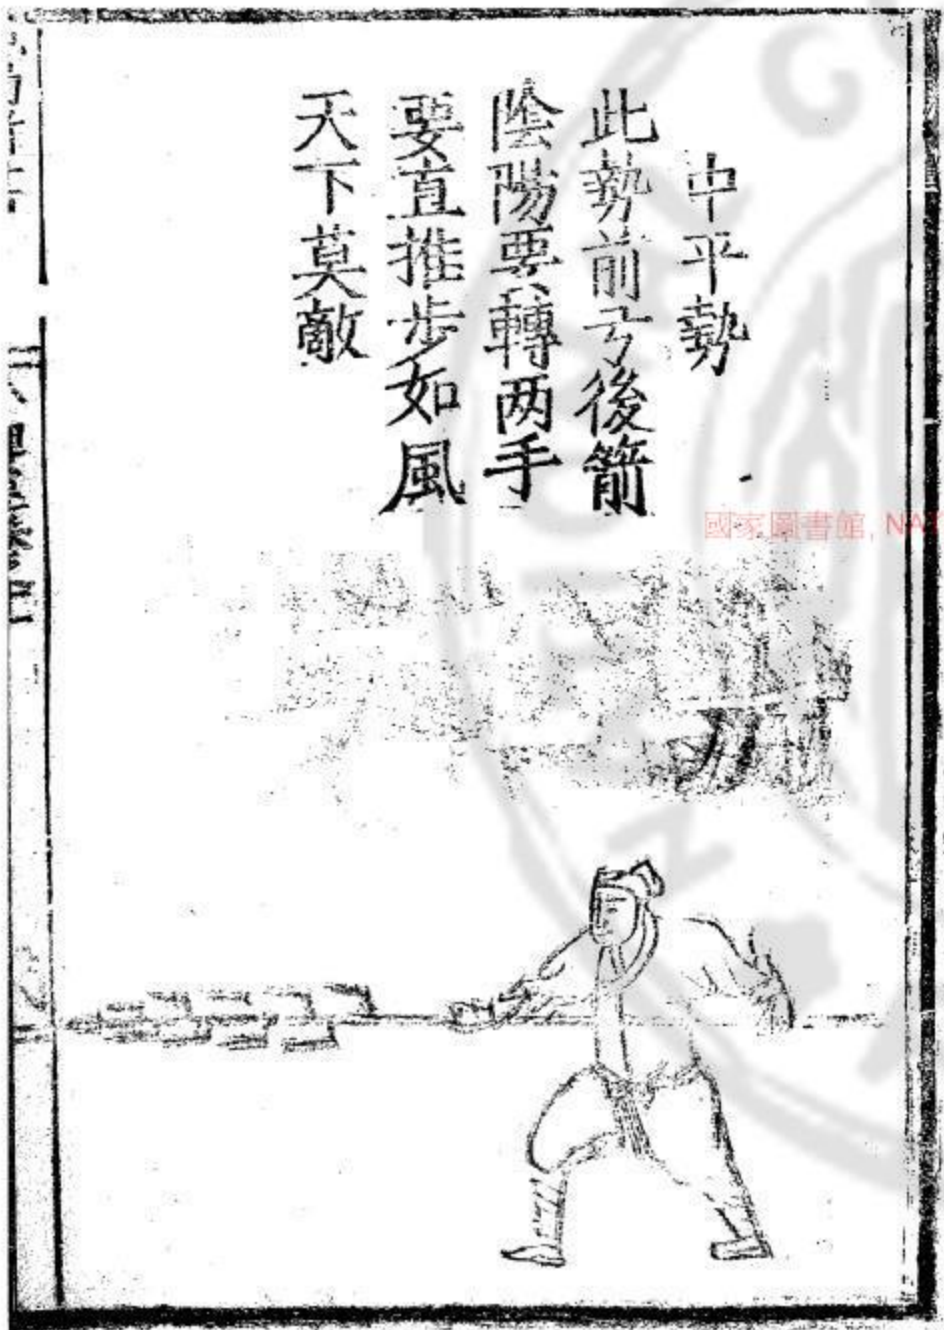 中平勢
此勢前弓後箭
陰陽要轉两手
要直推步如風
天下莫敵
國家圖書館, NAT